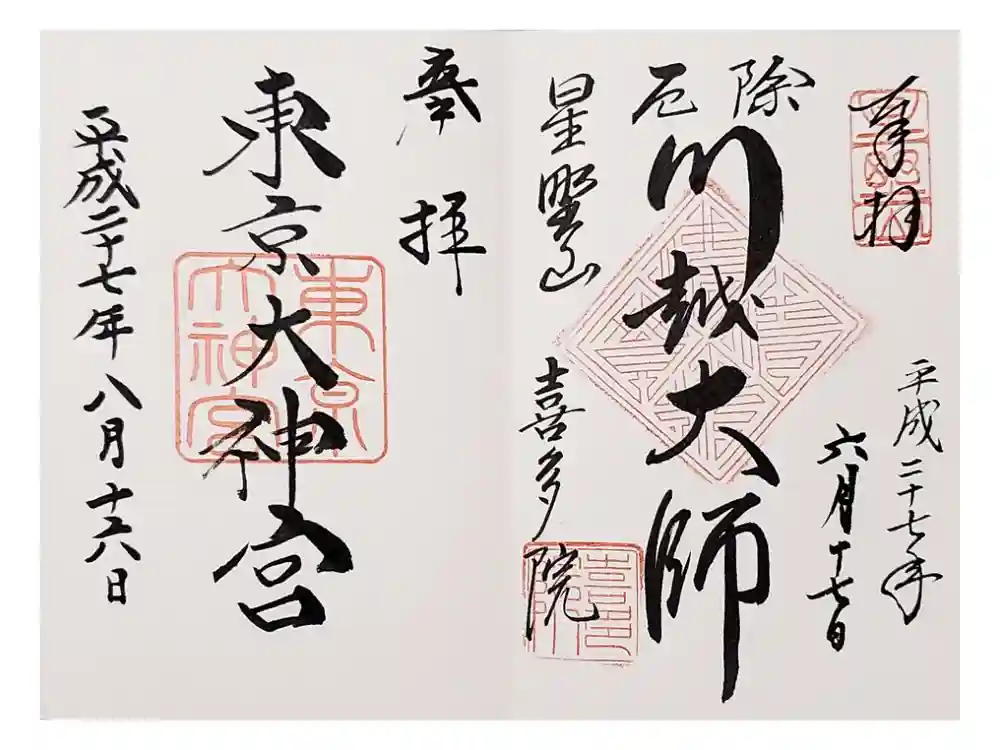 奉拝
平成二十七年
六月十七日
厄除
川越大師
星野山
喜多院
奉拝
東京大神宮
東京
大神宮
平成二十七年八月十六日